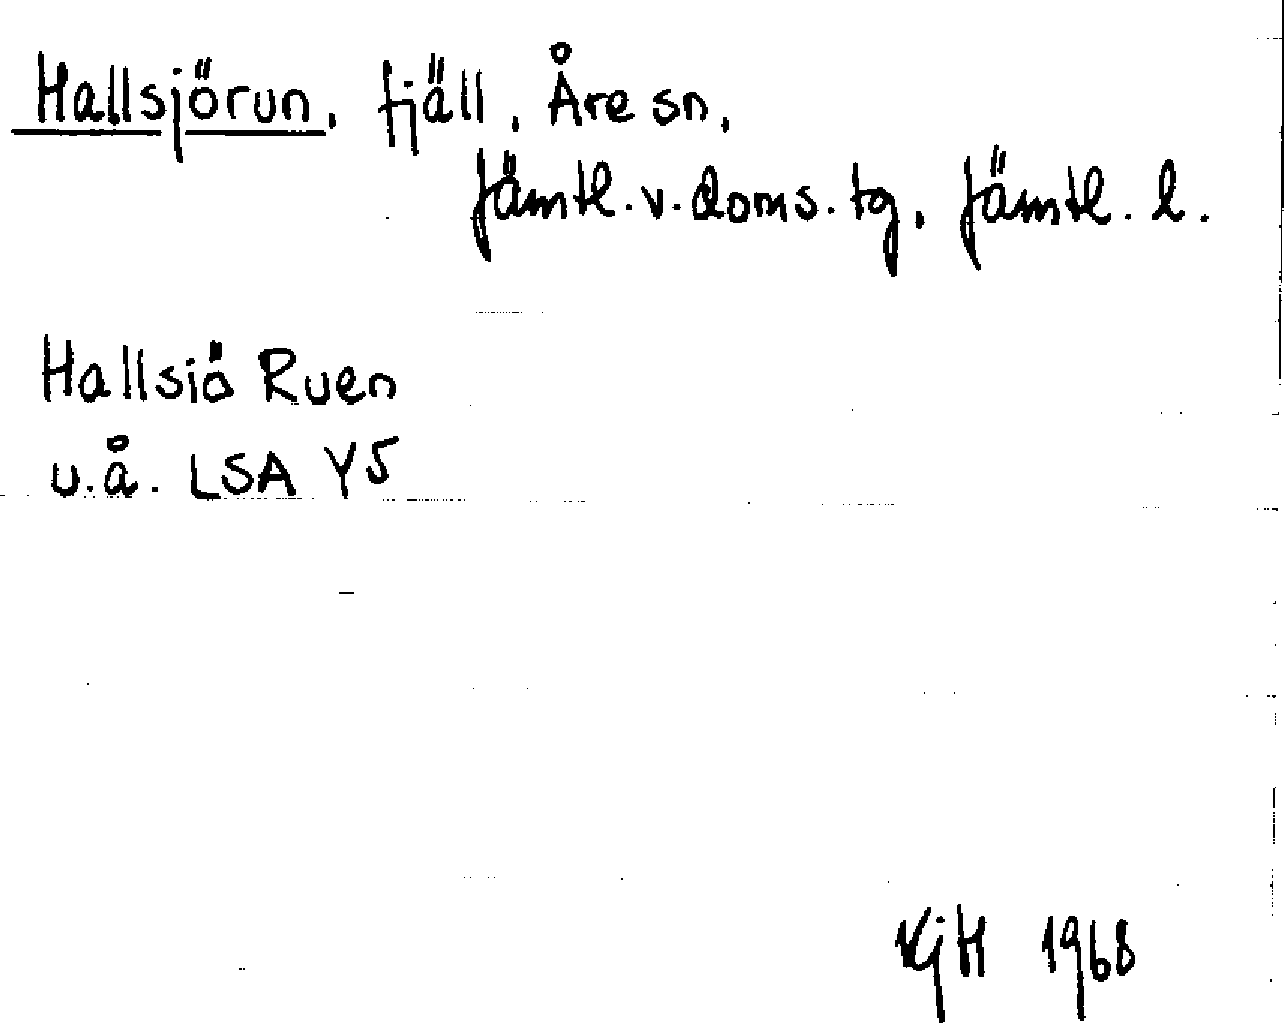 Hallsjörun, fjäll, Åre sn,
Jämtl. v. doms. tg, Jämtl. l.
Hallsiö Ruen
u.å. LSA Y5
KjH 1968